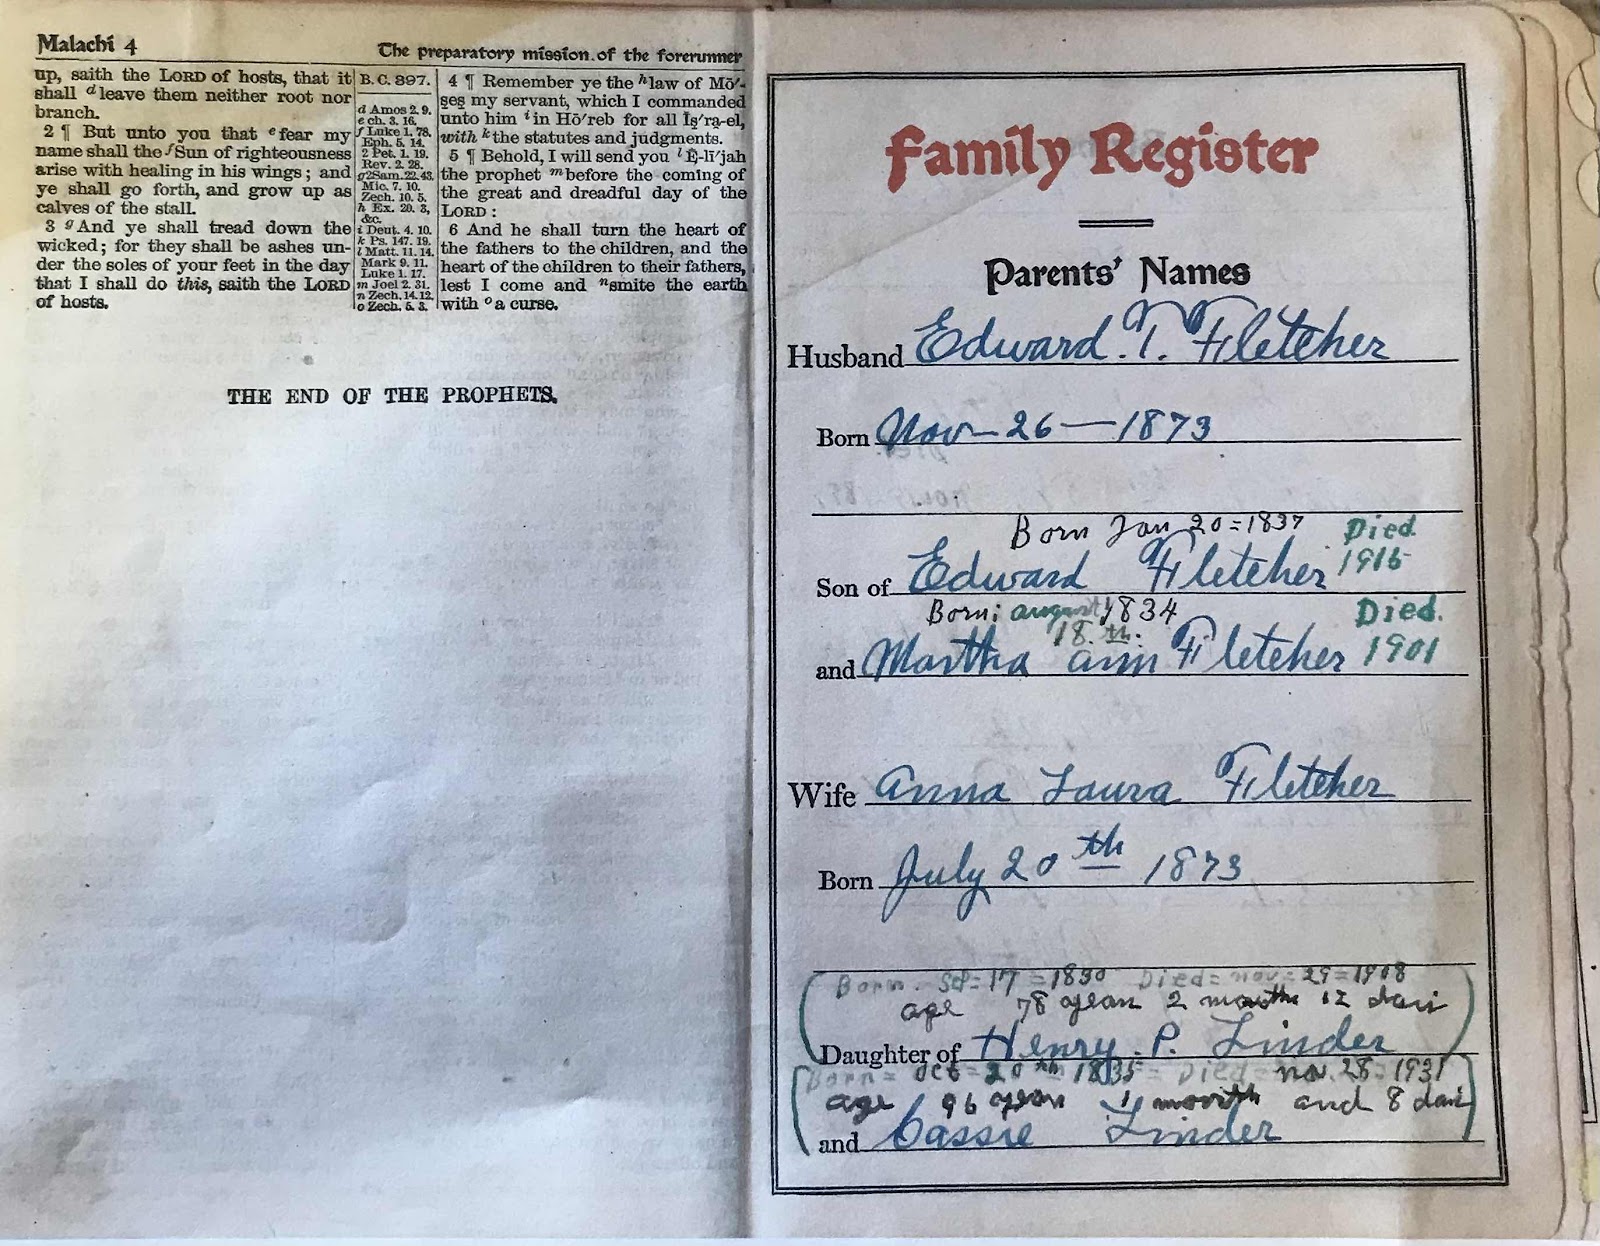 Malachi 4
The preparatory mission of the forerunner
up, saith the LORD of hosts, that it
shall d leave them neither root nor
branch.
2 ¶ But unto you that e fear my
name shall the f Sun of righteousness
arise with healing in his wings; and
ye shall go forth, and grow up as
calves of the stall.
3 g And ye shall tread down the
wicked; for they shall be ashes un-
der the soles of your feet in the day
that I shall do this, saith the LORD
of hosts.
B. C. 397.
d Amos 2. 9.
e ch. 3. 16.
f Luke 1. 78.
Eph. 5. 14.
2 Pet. 1. 19.
Rev. 2. 28.
g 2Sam. 22. 43.
Mic. 7. 10.
Zech. 10. 5.
h Ex. 20. 3,
&c.
i Deut. 4. 10.
k Ps. 147. 19.
l Matt. 11. 14.
Mark 9. 11.
Luke 1. 17.
m Joel 2. 31.
n Zech. 14. 12.
o Zech. 5. 3.
4 ¶ Remember ye the h law of Mō′-
ṣeṣ my servant, which I commanded
unto him i in Hō′reb for all Ĭṣ′rạ-el,
with k the statutes and judgments.
5 ¶ Behold, I will send you l Ē̇-lī′jah
the prophet m before the coming of
the great and dreadful day of the
LORD:
6 And he shall turn the heart of
the fathers to the children, and the
heart of the children to their fathers,
lest I come and n smite the earth
with o a curse.
THE END OF THE PROPHETS.
Family Register
Parents' Names
Husband Edward. T. Fletcher
Born Nov–26–1873
Born Jan 20=1837 Died.
Son of Edward Fletcher 1915
Born; august 1834 Died.
18.th.
and Martha ann Fletcher 1901
Wife Anna Laura Fletcher
Born July 20th 1873
Born. Sep=17=1830 Died=nov=29=1908
age 78 years 2 months 12 days
Daughter of Henry. P. Linder
Born= Oct=20th=1835= Died= nov. 28=1931
age 96 years 1 month and 8 days
and Cassie Linder